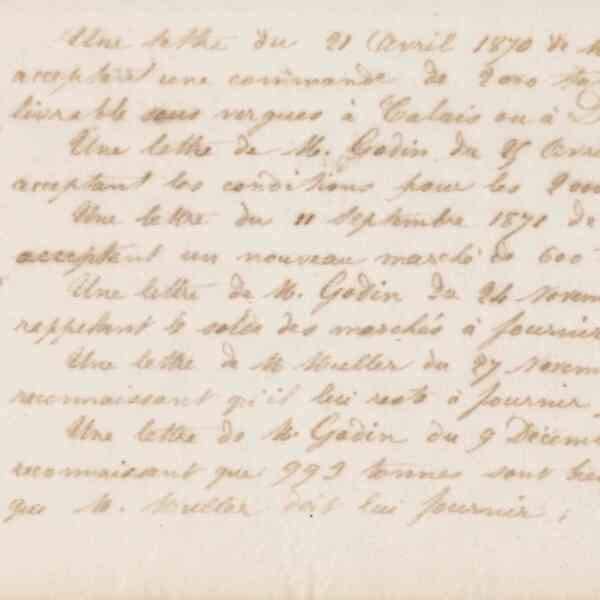 Une lettre du 21 Avril 1870 de M
acceptant une commande de 2000 to
livrable sous vergues à Calais ou à D
Une lettre de M. Godin du 25 Avri
acceptant les conditions pour les 2000
Une lettre du 11 Septembre 1871 de
acceptant un nouveau marché de 600
Une lettre de M. Godin du 24 Novem
rappelant le solde des marchés à fournir
Une lettre de M Mueller du 27 Novem
reconnaissant qu'il lui reste à fournir
Une lettre de M. Godin du 9 Décem
reconnaissant que 992 tonnes sont
que M. Mueller doit lui fournir.